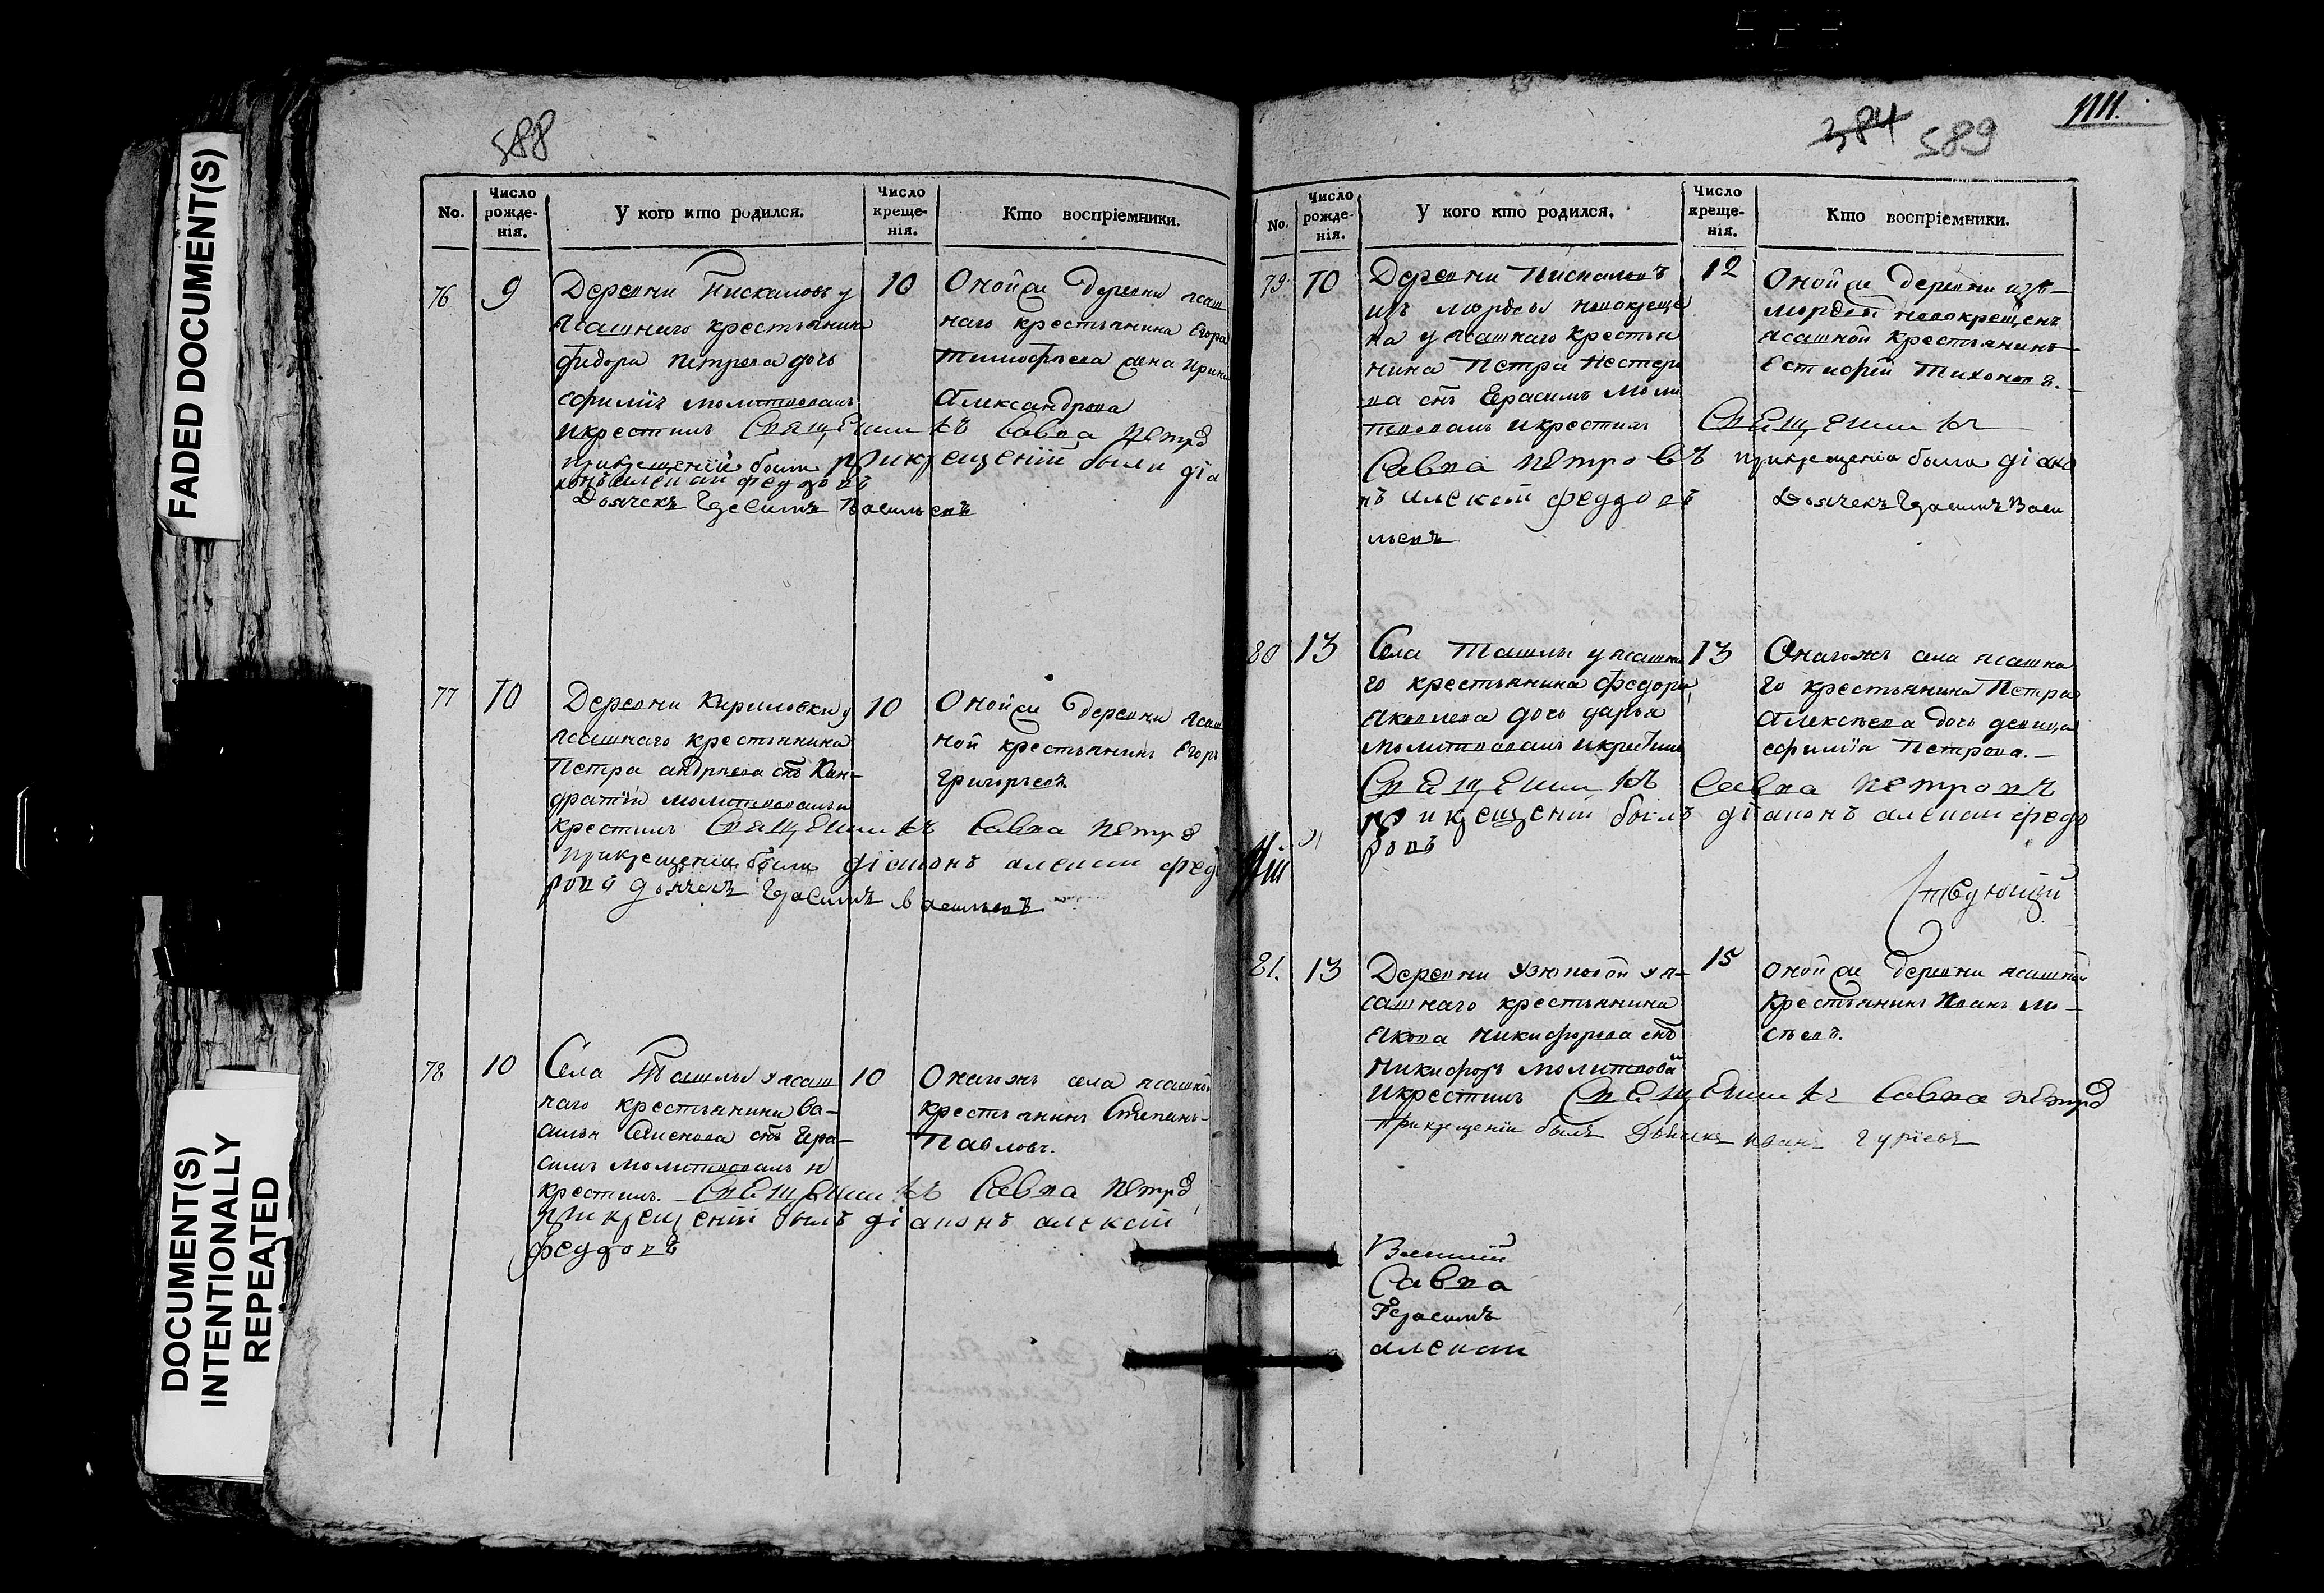 FADED DOCUMENT(S)
DOCUMENT(S)
INTENTIONALLY
REPEATED
588
No.
Число рожде-нія.
У кого кто родился.
Число креще-нія.
Кто воспріемники.
76
9
Деревни Пискаловъ у
ясашнаго крестьянина
федора петрова дочь
евфимія молитвовалъ
икрестилъ Священникъ Савва петро
прикрещеніи были прикрещеніи были діа
конъ алексей феддоровъ
Дьячекъ Герасимъ Васильевъ
10
Оной же деревни ясаш
наго крестьянина Егора
Тимофѣева жена Ирина
Александрова
77
10
Деревни Кириловки у
ясашнаго крестьянина
Петра андрѣева снъ Кон-
дратій молитвовалъ и
крестилъ Священникъ Савва петро
прикрещеніи были діаконъ алексей федо
ровъ дьячекъ Герасимъ Васильевъ
10
Оной же деревни ясаш
ной крестьянинъ Егоръ
Григорьевъ
78
10
Села Ташлы уясаш
наго крестьянина Ва-
силья Семенова снъ Гера-
симъ молитвовалъ и
крестилъ. Священникъ Савва петро
прикрещеніи былъ діаконъ алексей
феддовъ
10
Онагожъ села ясашной
крестьянинъ Степанъ
Павловъ.
1111.
384
589
No.
Число рожде-нія.
У кого кто родился.
Число креще-нія.
Кто воспріемники.
79.
10
Деревни Пискаловъ
изъ мордвы новокреще
на у ясашнаго крестья
нина Петра Нестеро
ва снъ Герасимъ моли
твовалъ икрестилъ Священникъ
Савва петровъ прикрещеніи были діако
нъ алексей феддовъ Дьячекъ Герасимъ Васи
льевъ
12
Оной же деревни изъ
мордвы новокрещенъ
ясашной крестьянинъ
Естифей Тихоновъ.
80
13
Села Ташлы уясашна
го крестьянина федора
яковлева дочь дарья
молитвовалъ икрестилъ
Священникъ Савва петровъ
прикрещеніи былъ діаконъ алексей федо
ровъ
13
Онагожъ села ясашна
го крестьянина Петра
Алексѣева дочь девица
евфимія Петрова.
81.
13
Деревни Узюковой уя-
сашнаго крестьянина
якова никифорова снъ
Никифоръ молитвова
икрестилъ Священникъ Савва петро
прикрещеніи былъ Дьячекъ иванъ гурьевъ
15
оной же деревни ясашной
крестьянинъ Иванъ Мо-
сѣевъ.
Савва
Герасимъ
алексей